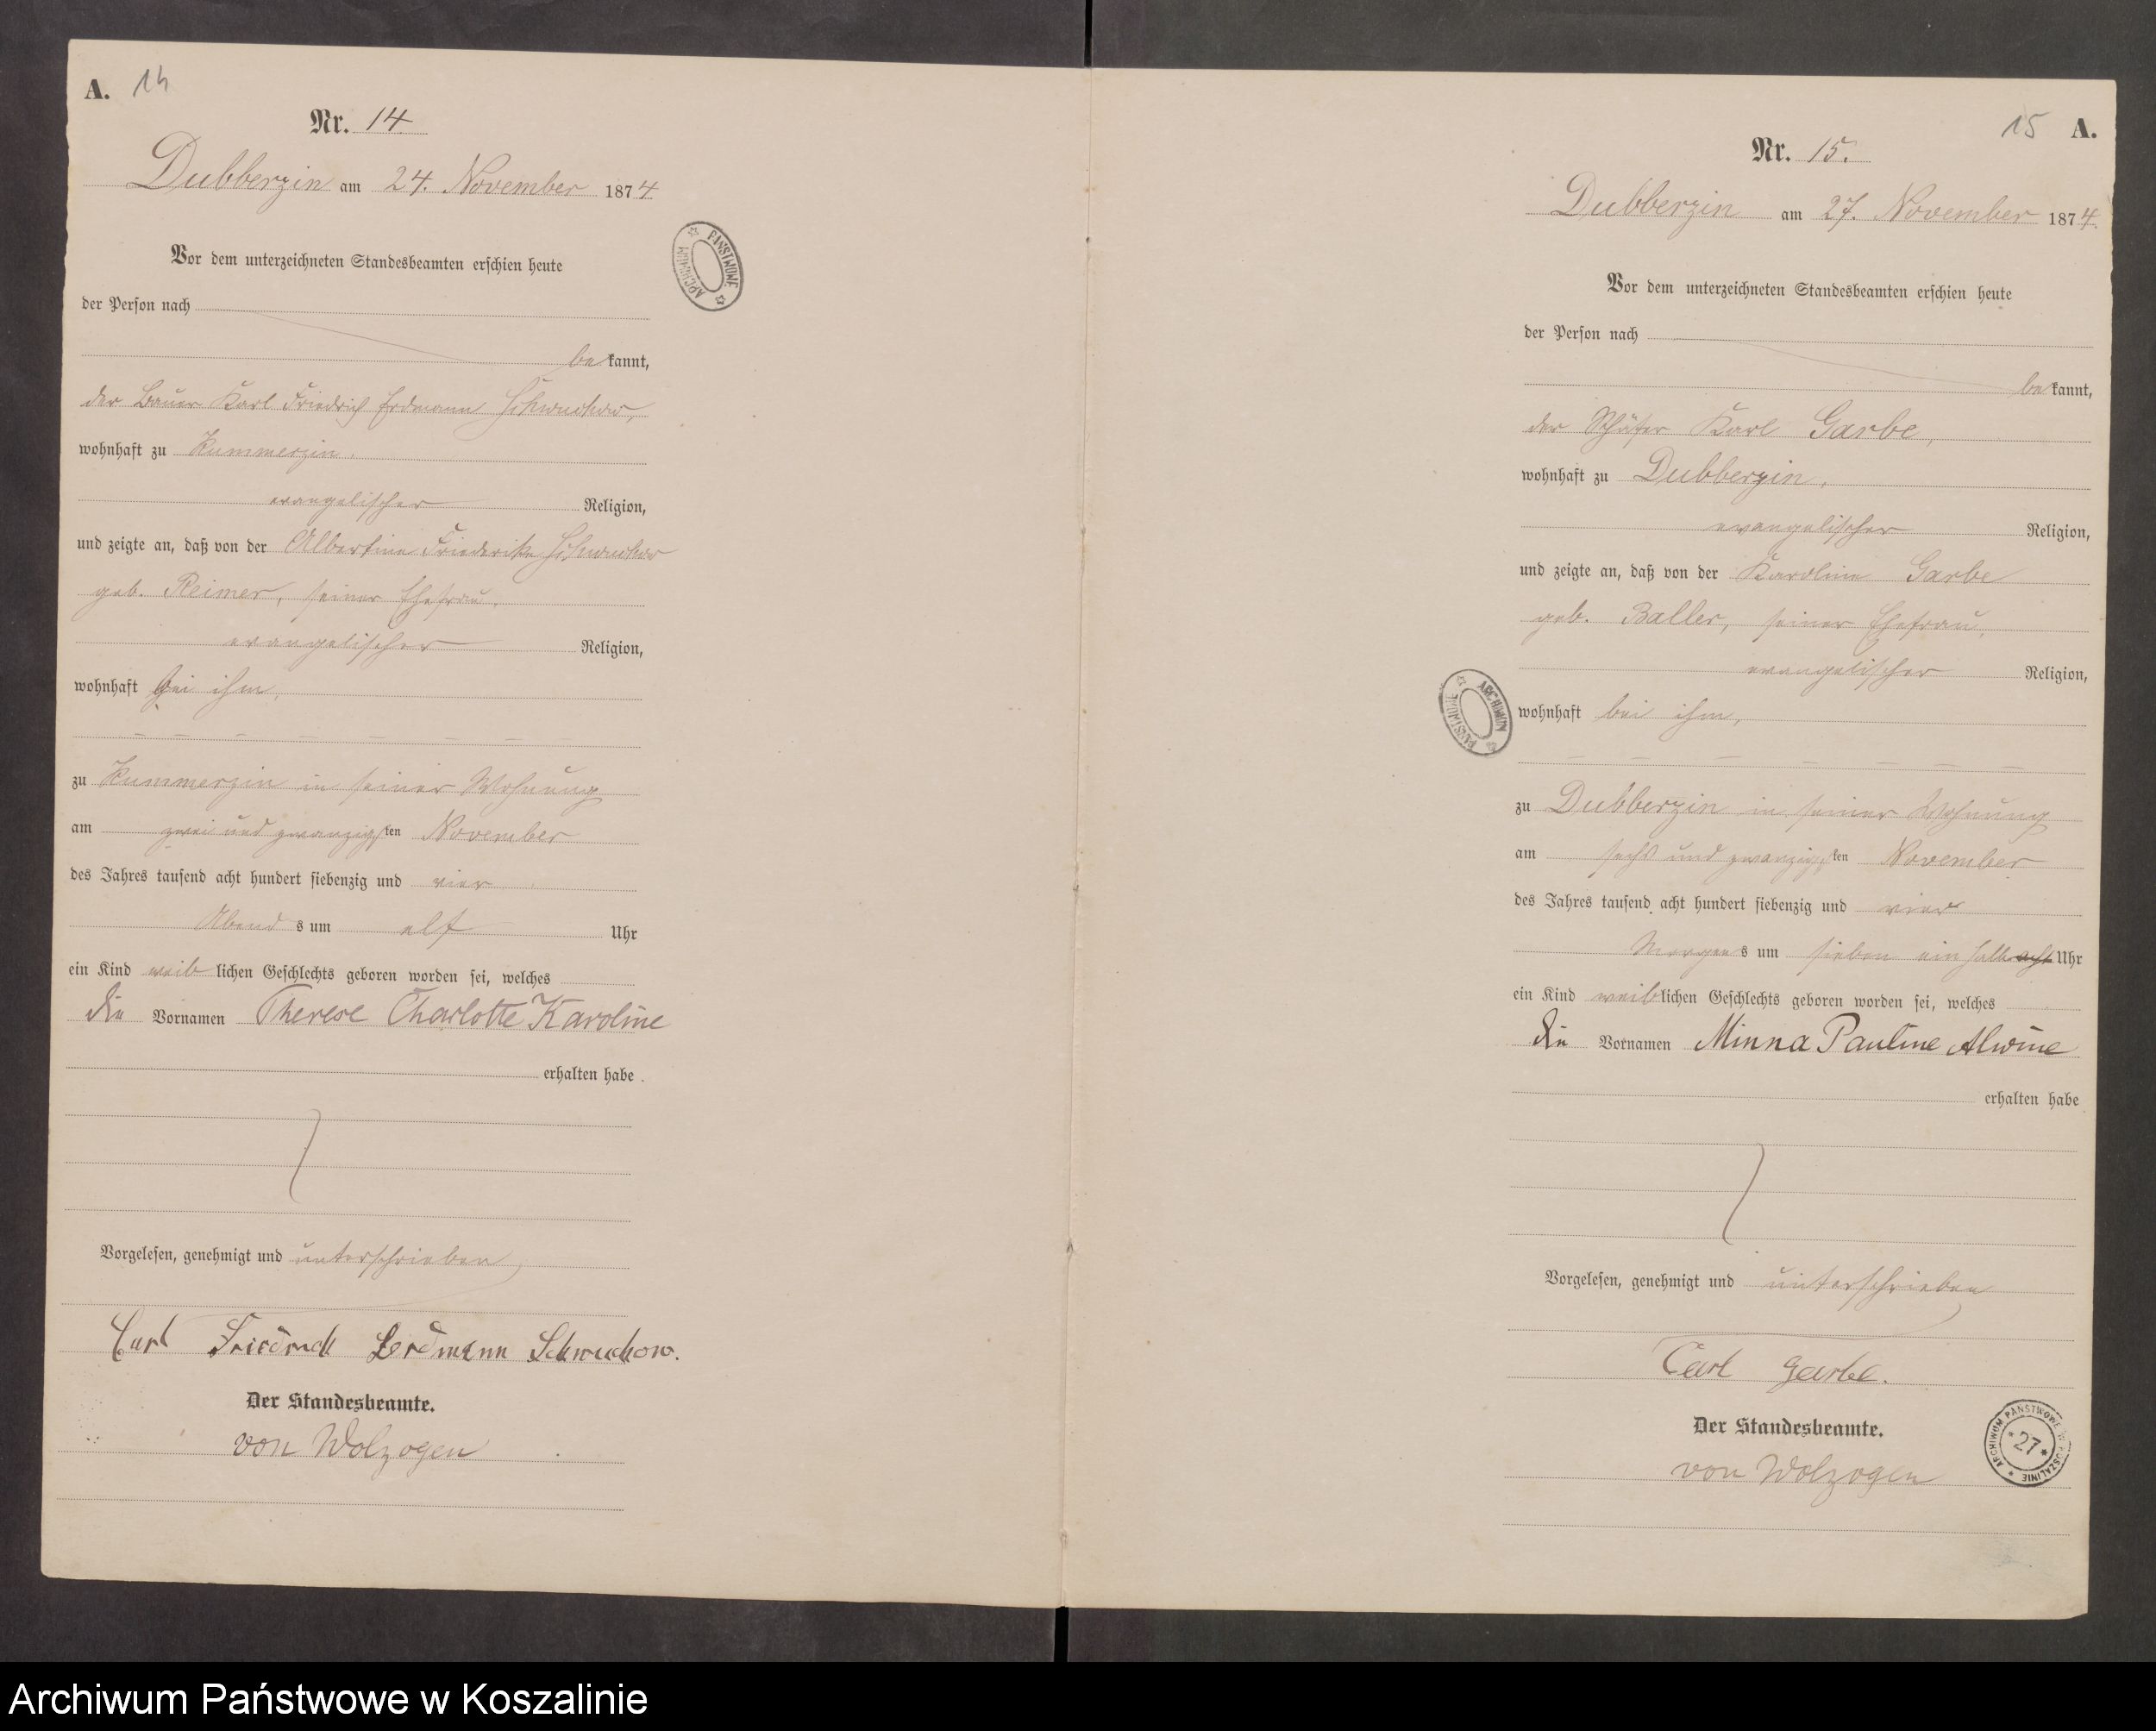 A. 14
Nr. 14
Dubberzin am 24. November 1874
Vor dem unterzeichneten Standesbeamten erschien heute
der Person nach
bekannt,
der Bauer Karl Friedrich Erdmann Schwuchow,
wohnhaft zu Kummerzin.
evangelischer Religion,
und zeigte an, daß von der Albertine Friederike Schwuchow
geb. Reimer, seiner Ehefrau,
evangelischer Religion,
wohnhaft bei ihm,
zu Kummerzin in seiner Wohnung
am zwei und zwanzigsten November
des Jahres tausend acht hundert siebenzig und vier
Abends um elf Uhr
ein Kind weiblichen Geschlechts geboren worden sei, welches
die Vornamen Therese Charlotte Karoline
erhalten habe.
Vorgelesen, genehmigt und unterschrieben
Carl Friedrich Erdmann Schwuchow.
Der Standesbeamte.
von Wolzogen
ARCHIWUM PAŃSTWOWE
15 A.
Nr. 15.
Dubberzin am 27. November 1874.
Vor dem unterzeichneten Standesbeamten erschien heute
der Person nach
bekannt,
der Schäfer Karl Garbe,
wohnhaft zu Dubberzin,
evangelischer Religion,
und zeigte an, daß von der Karoline Garbe
geb. Baller, seiner Ehefrau,
evangelischer Religion,
wohnhaft bei ihm,
zu Dubberzin in seiner Wohnung
am sechs und zwanzigsten November
des Jahres tausend acht hundert siebenzig und vier
Morgens um sieben ein halb acht Uhr
ein Kind weiblichen Geschlechts geboren worden sei, welches
die Vornamen Minna Pauline Alwine
erhalten habe
Vorgelesen, genehmigt und unterschrieben
Carl Garbe.
Der Standesbeamte.
von Wolzogen
ARCHIWUM PAŃSTWOWE
ARCHIWUM PAŃSTWOWE W KOSZALINIE
* 27 *
Archiwum Państwowe w Koszalinie